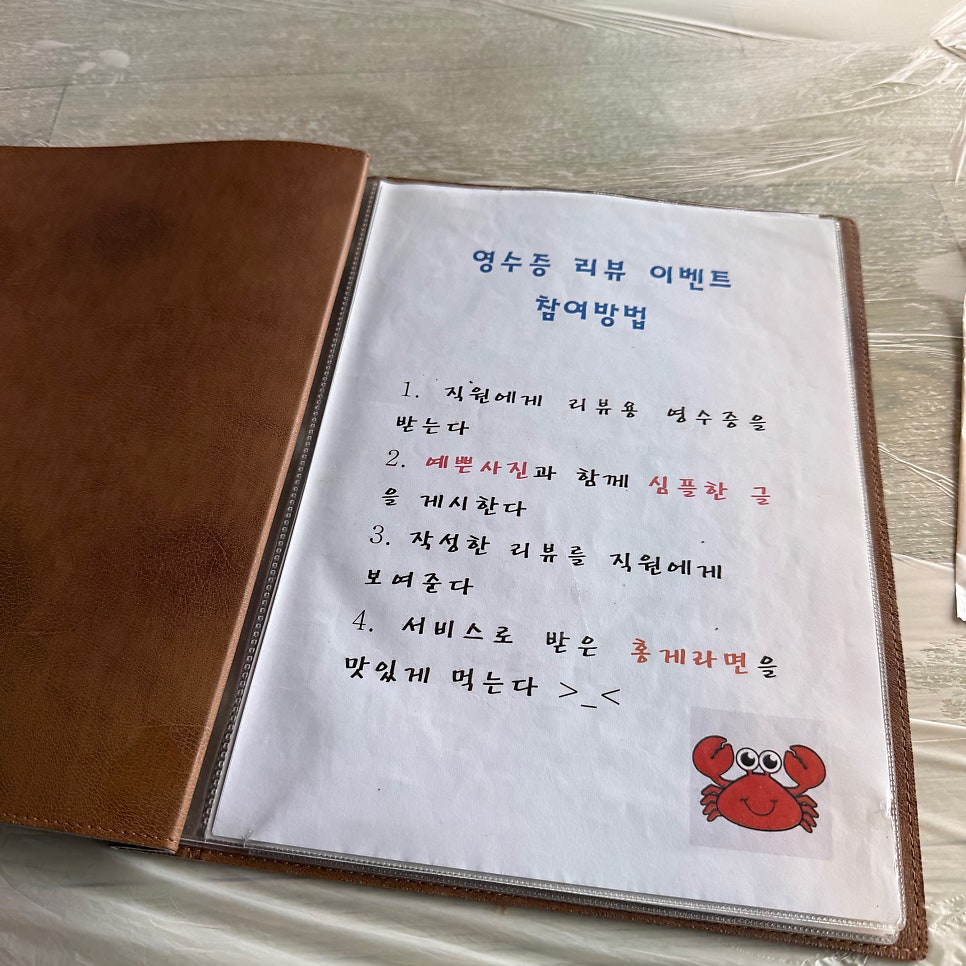 영수증 리뷰 이벤트
참여방법
1. 직원에게 리뷰용 영수증을
받는다
2. 예쁜사진과 함께 심플한 글
을 게시한다
3. 작성한 리뷰를 직원에게
보여준다
4. 서비스로 받은 홍게라면을
맛있게 먹는다 >_<